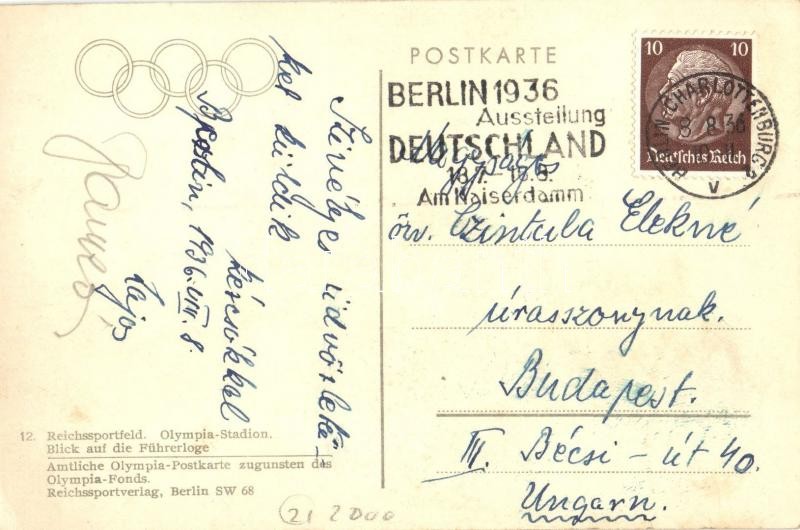 Szívélyes üdvözlete-
kel küldik
kézcsókkal
Berlin, 1936. VIII. 8.
Lajos
12. Reichssportfeld. Olympia-Stadion.
Blick auf die Führerloge
Amtliche Olympia-Postkarte zugunsten des
Olympia-Fonds.
Reichssportverlag, Berlin SW 68
21 2000
POSTKARTE
BERLIN 1936
Ausstellung
DEUTSCHLAND
18.7.-16.8.
Am Kaiserdamm
10 10
Deutsches Reich
BERLIN-CHARLOTTENBURG 2
8.8.36
V
Nagyságos
özv. Czintula Elekné
úrasszonynak.
Budapest.
III. Bécsi-út 40.
Ungarn.